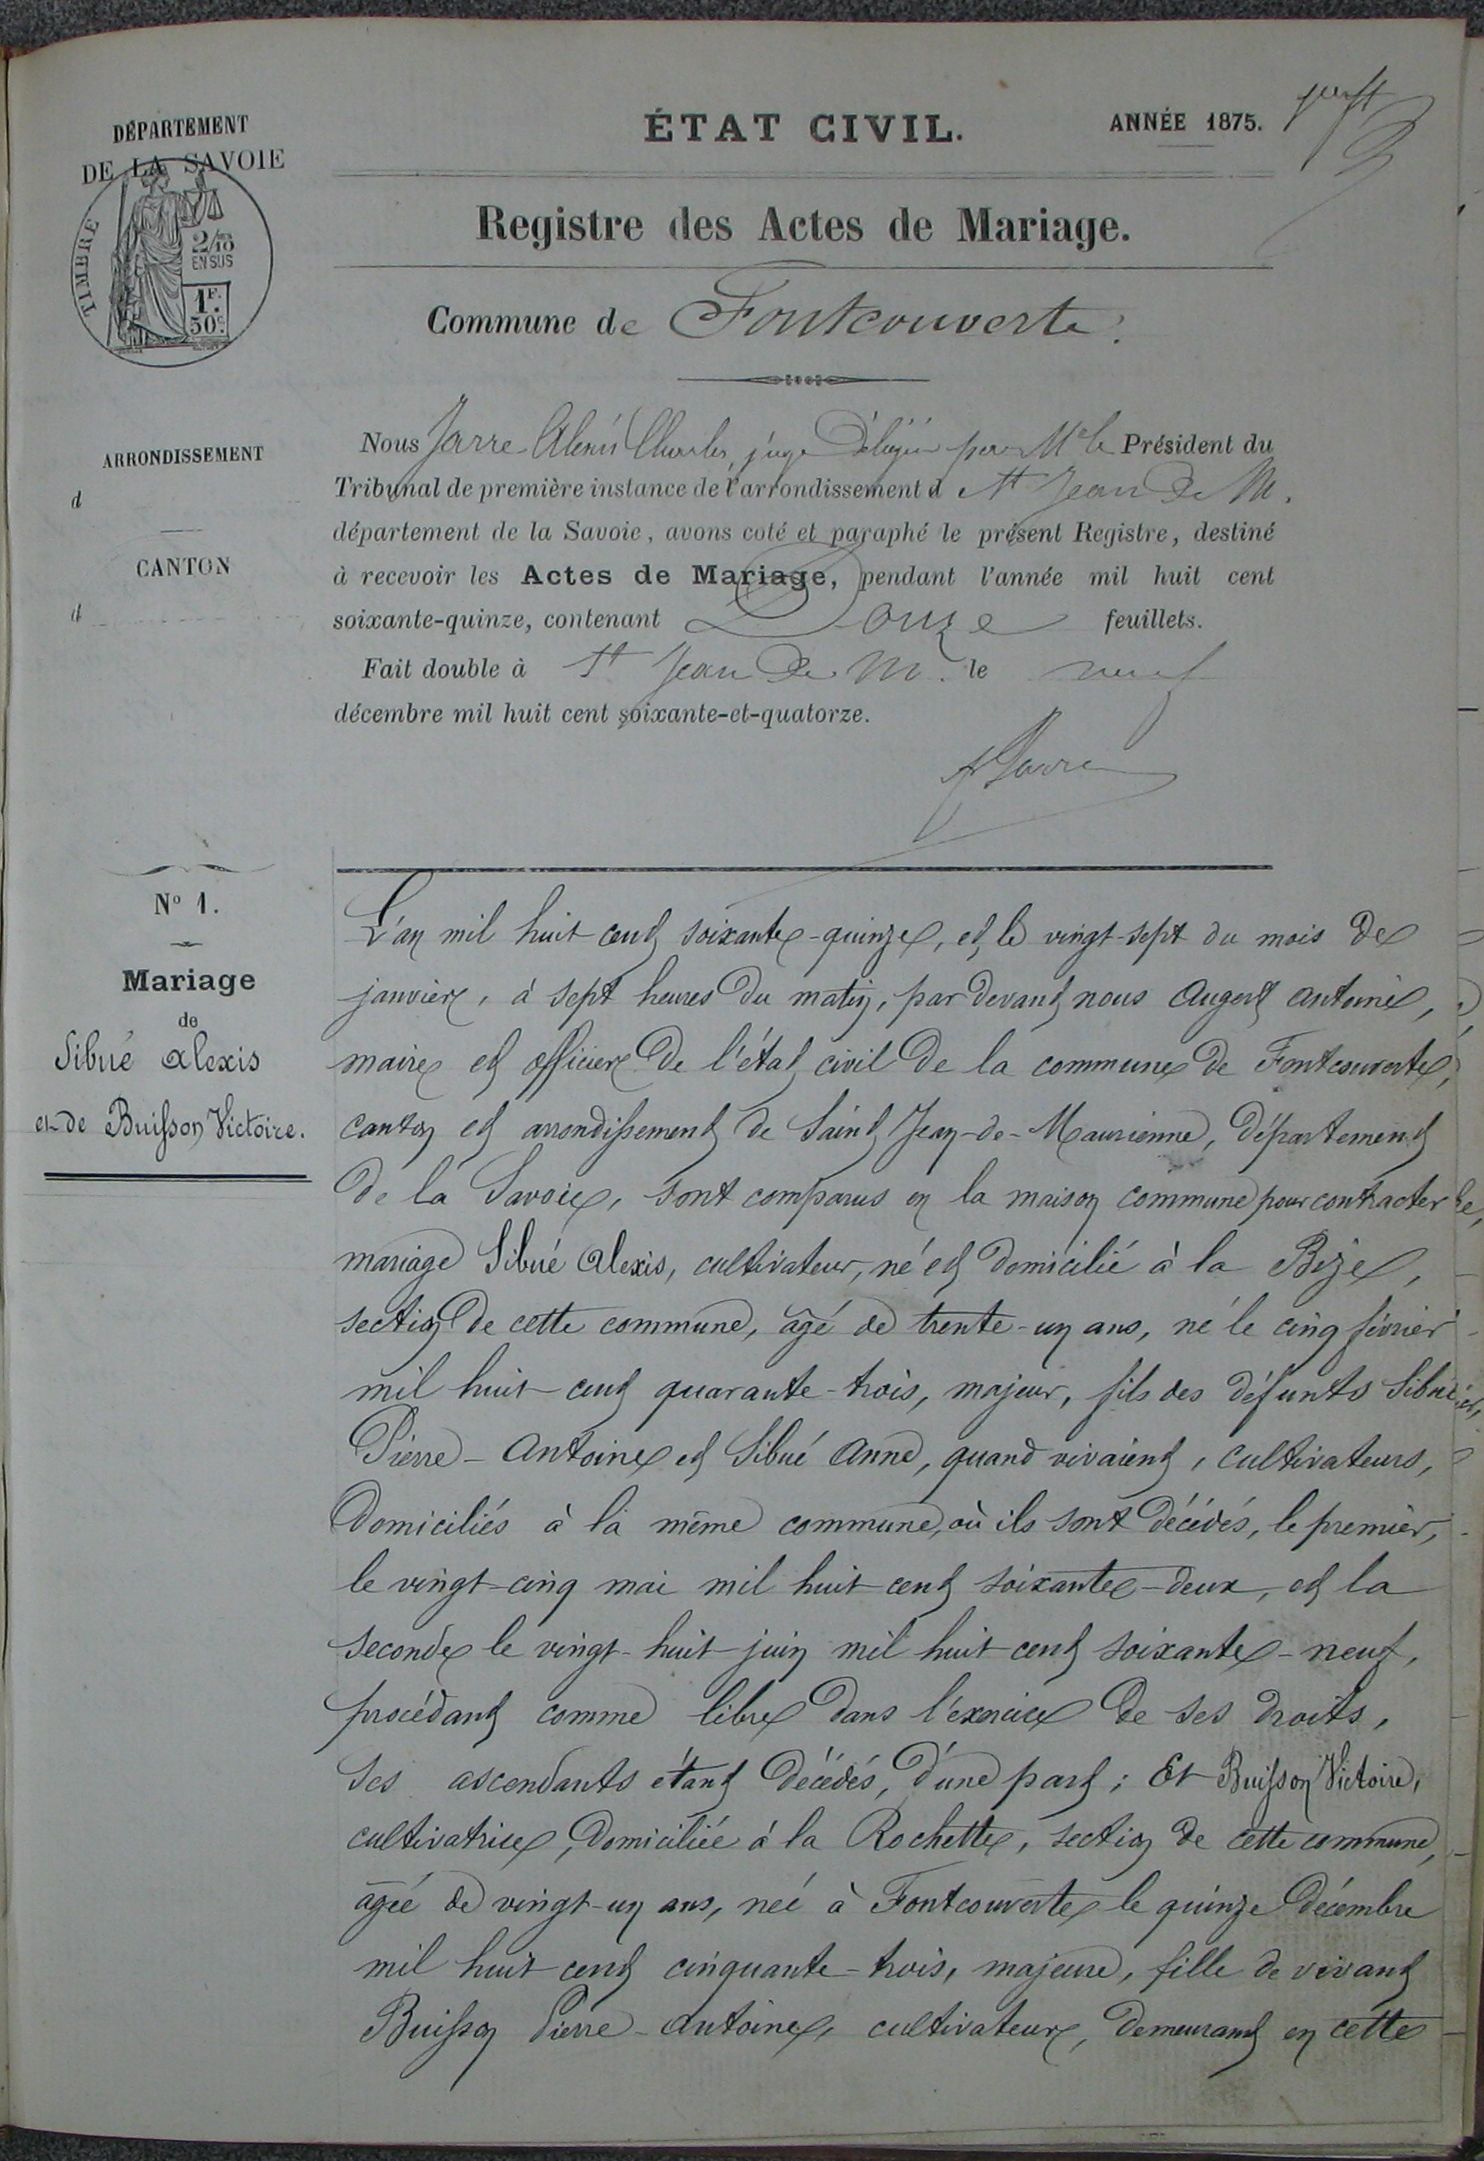 DÉPARTEMENT
DE LA SAVOIE
TIMBRE
2/10
EN SUS
1F.
50c.
ÉTAT CIVIL.
ANNÉE 1875.
Registre des Actes de Mariage.
Commune de Fontcouverte.
ARRONDISSEMENT
d
CANTON
d
Nous Jarre Alexis Charles, juge Délégué par Mr le Président du
Tribunal de première instance de l'arrondissement d St Jean de M.
département de la Savoie, avons coté et paraphé le présent Registre, destiné
à recevoir les Actes de Mariage, pendant l'année mil huit cent
soixante-quinze, contenant Douze feuillets.
Fait double à St Jean de M. le neuf
décembre mil huit cent soixante-et-quatorze.
A Jarre
No 1.
Mariage
de
Sibué Alexis
et de Buisson Victoire.
L'an mil huit cent soixante-quinze, et le vingt-sept du mois de
janvier, à sept heures du matin, par devant nous Augert Antoine,
maire et officier de l'état civil de la commune de Fontcouverte,
canton et arrondissement de Saint Jean-de-Maurienne, département
de la Savoie, sont comparus en la maison commune pour contracter
mariage Sibué Alexis, cultivateur, né et domicilié à la Bize,
section de cette commune, âgé de trente-un ans, né le cinq février
mil huit cent quarante-trois, majeur, fils des défunts Sibué
Pierre-Antoine et Sibué Anne, quand vivaient, cultivateurs,
domiciliés à la même commune, où ils sont décédés, le premier,
le vingt-cinq mai mil huit cent soixante-deux, et la
seconde le vingt-huit juin mil huit cent soixante-neuf,
procédant comme libre dans l'exercice de ses droits,
ses ascendants étant décédés, d'une part; Et Buisson Victoire,
cultivatrice, domiciliée à la Rochette, section de cette commune,
âgée de vingt-un ans, née à Fontcouverte le quinze décembre
mil huit cent cinquante-trois, majeure, fille de vivant
Buisson Pierre-Antoine, cultivateur, demeurant en cette